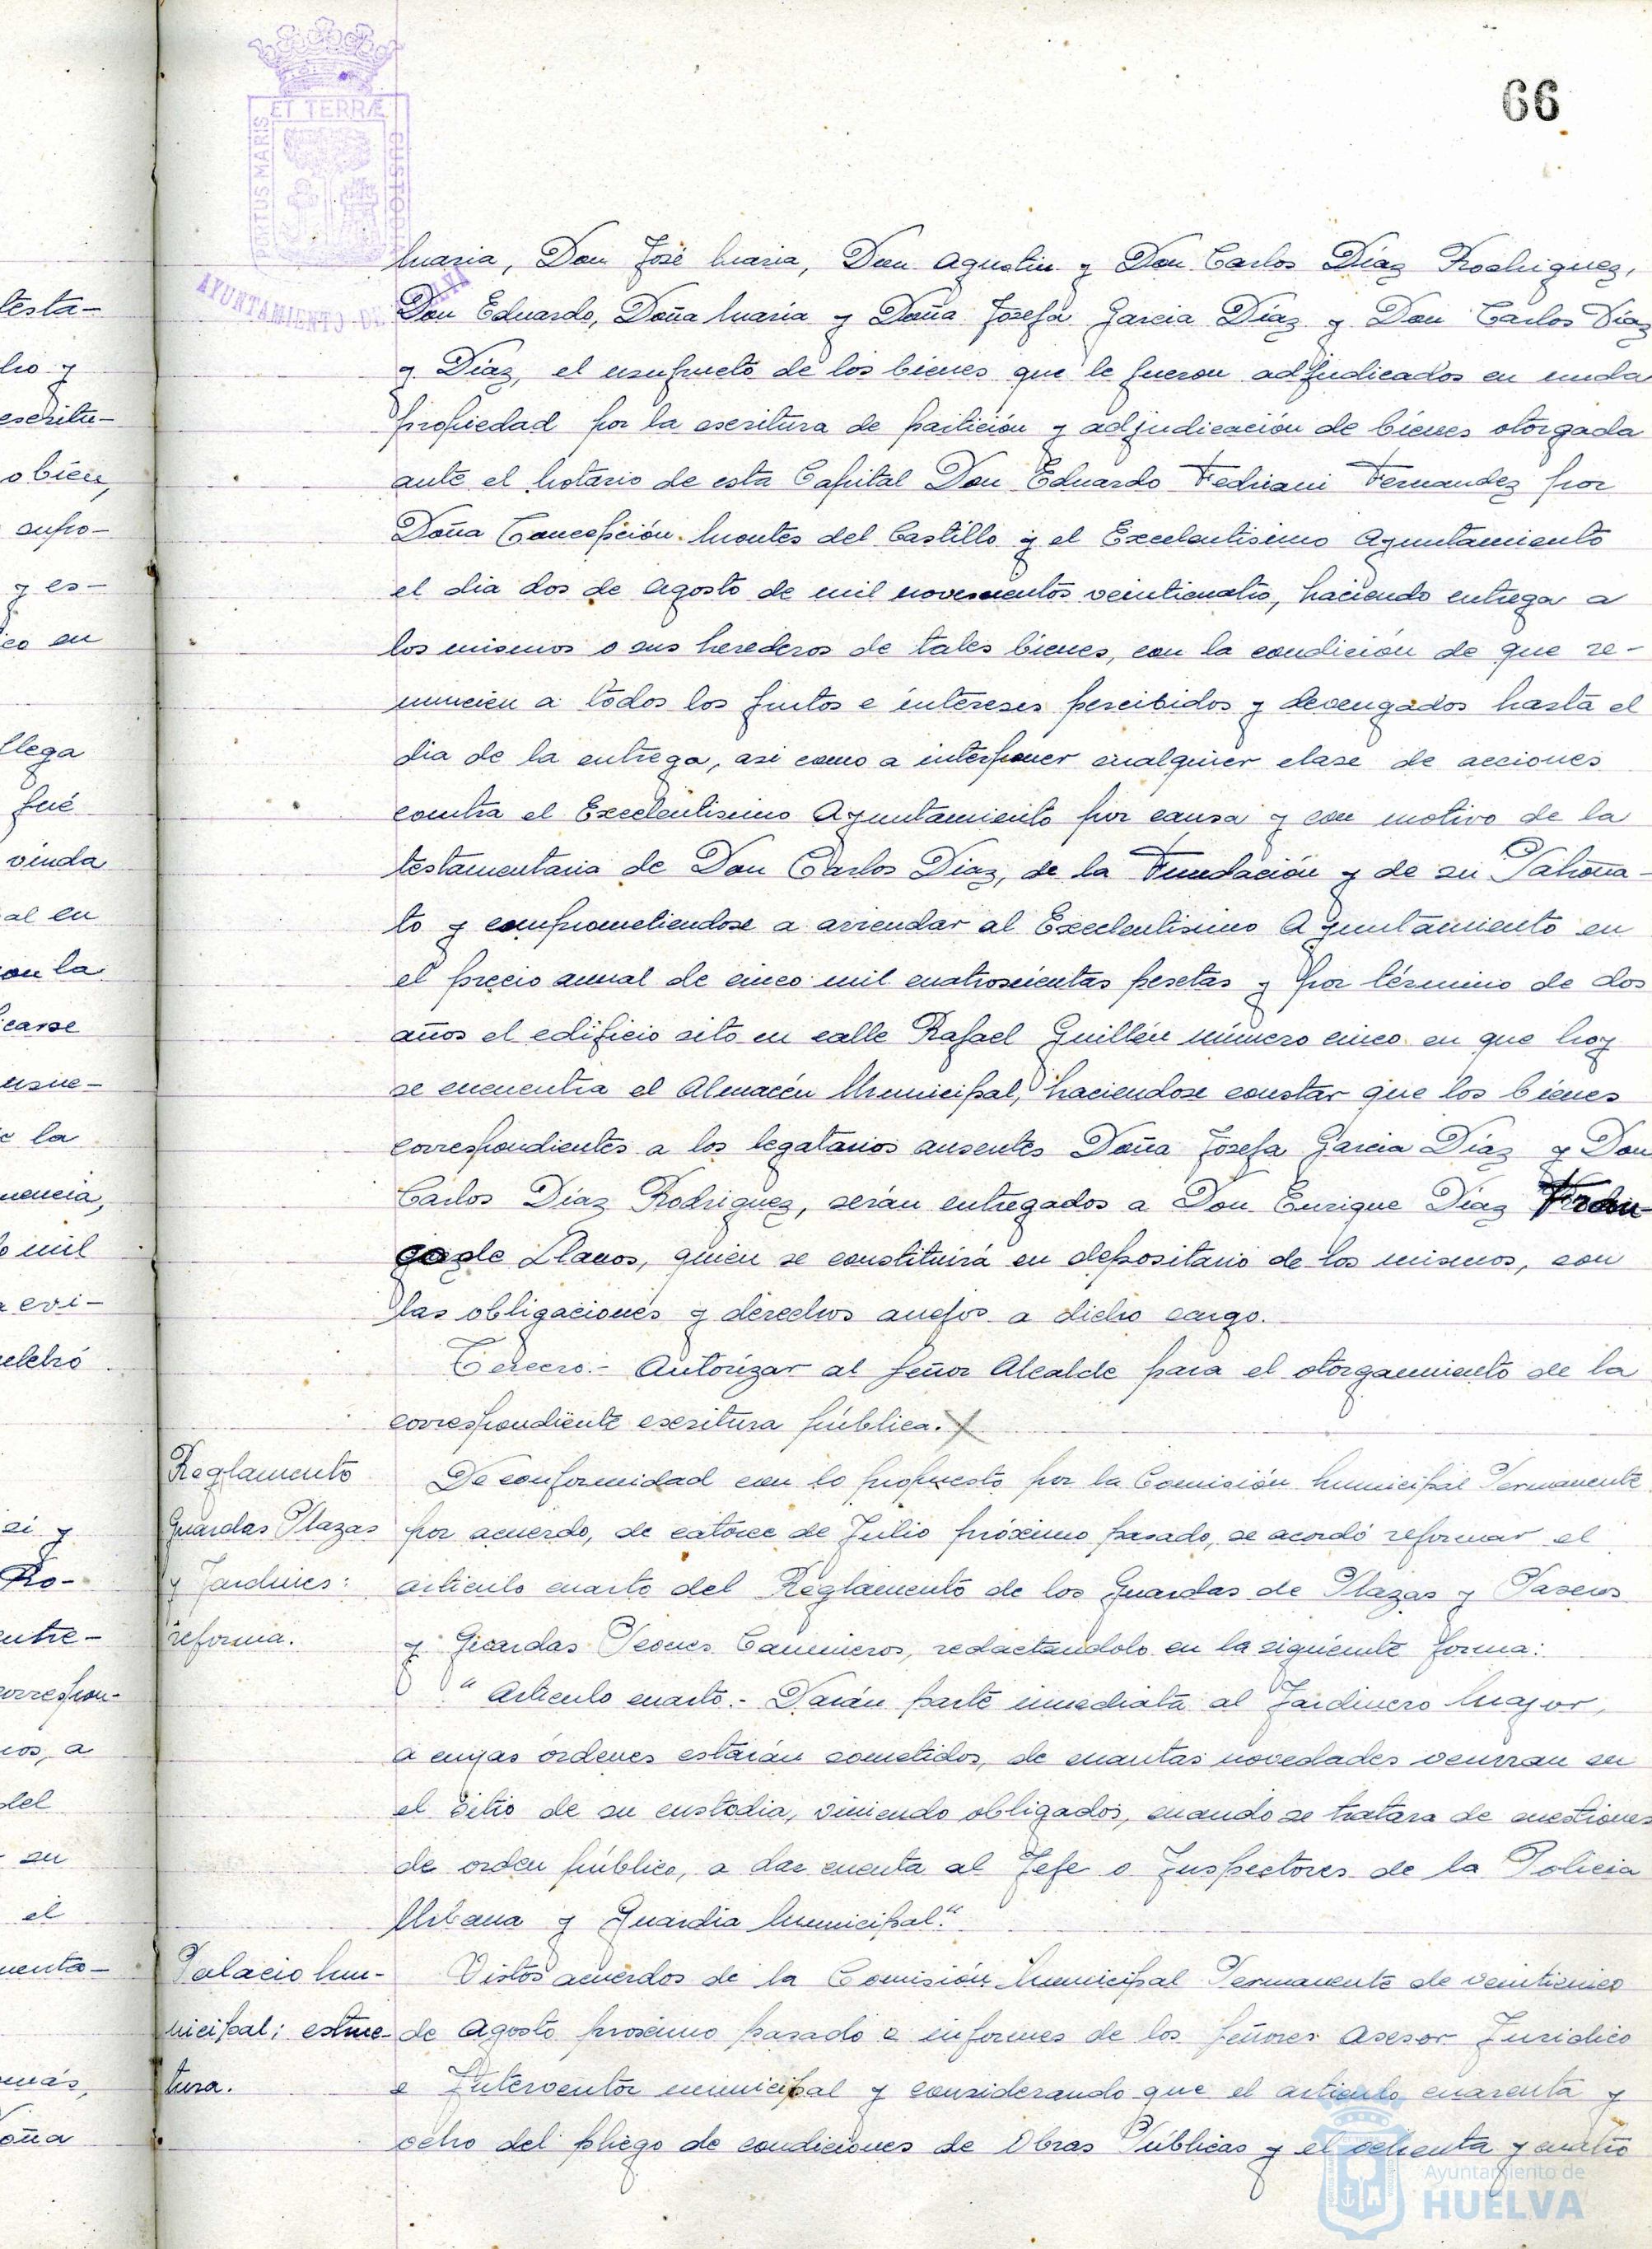 66
PORTUS MARIS ET TERRÆ CUSTODIA
AYUNTAMIENTO DE HUELVA
Maria, Don José Maria, Don Agustin y Don Carlos Díaz Rodriguez,
Don Eduardo, Doña María y Doña Josefa Garcia Díaz y Don Carlos Díaz
y Diaz, el usufructo de los bienes que le fueron adjudicados en nuda
propiedad por la escritura de partición y adjudicación de bienes otorgada
ante el Notario de esta Capital Don Eduardo Fedriani Fernandez por
Doña Concepción Montes del Castillo y el Excelentisimo Ayuntamiento
el dia dos de Agosto de mil novecientos veinticuatro, haciendo entrega a
los mismos o sus herederos de tales bienes, con la condición de que re-
nuncien a todos los frutos e intereses percibidos y devengados hasta el
dia de la entrega, asi como a interponer cualquier clase de acciones
contra el Excelentisimo Ayuntamiento por causa y con motivo de la
testamentaria de Don Carlos Diaz, de la Fundación y de su Patrona-
to y comprometiendose a arrendar al Excelentisimo Ayuntamiento en
el precio anual de cinco mil cuatrocientas pesetas y por término de dos
años el edificio sito en calle Rafael Guillén número cinco en que hoy
se encuentra el Almacén Municipal, haciendose constar que los bienes
correspondientes a los legatarios ausentes Doña Josefa Garcia Díaz y Don
Carlos Díaz Rodriguez, serán entregados a Don Enrique Díaz
de Llanos, quien se constituirá en depositario de los mismos, con
las obligaciones y derechos anejos a dicho cargo.
Tercero.- Autorizar al Señor Alcalde para el otorgamiento de la
correspondiente escritura pública.
Reglamento
Guardas Plazas
y Jardines:
reforma.
De conformidad con lo propuesto por la Comisión Municipal Permanente
por acuerdo, de catorce de Julio próximo pasado, se acordó reformar el
articulo cuarto del Reglamento de los Guardas de Plazas y Paseos
y Guardas Peones Camineros, redactandolo en la siguiente forma:
"Articulo cuarto.- Darán parte inmediata al Jardinero Mayor,
a cuyas órdenes estarán sometidos, de cuantas novedades ocurran en
el sitio de su custodia, viniendo obligados, cuando se tratara de cuestiones
de orden público, a dar cuenta al Jefe o Inspectores de la Policia
Urbana y Guardia Municipal."
Palacio Mu-
nicipal; estruc-
tura.
Vistos acuerdos de la Comisión Municipal Permanente de veinticinco
de Agosto proximo pasado e informes de los Señores Asesor Juridico
e Interventor municipal y considerando que el articulo cuarenta y
ocho del pliego de condiciones de Obras Públicas y el ochenta y cuatro
testa-
ho y
escritu-
o bien,
supo-
y es-
ico en
llega
fué
viuda
al en
on la
icarse
usue-
e la
uencia,
o mil
evi-
elebró
si y
Ro-
entre-
correspon-
ios, a
del
su
el
uenta-
más,
oña
Ayuntamiento de
HUELVA